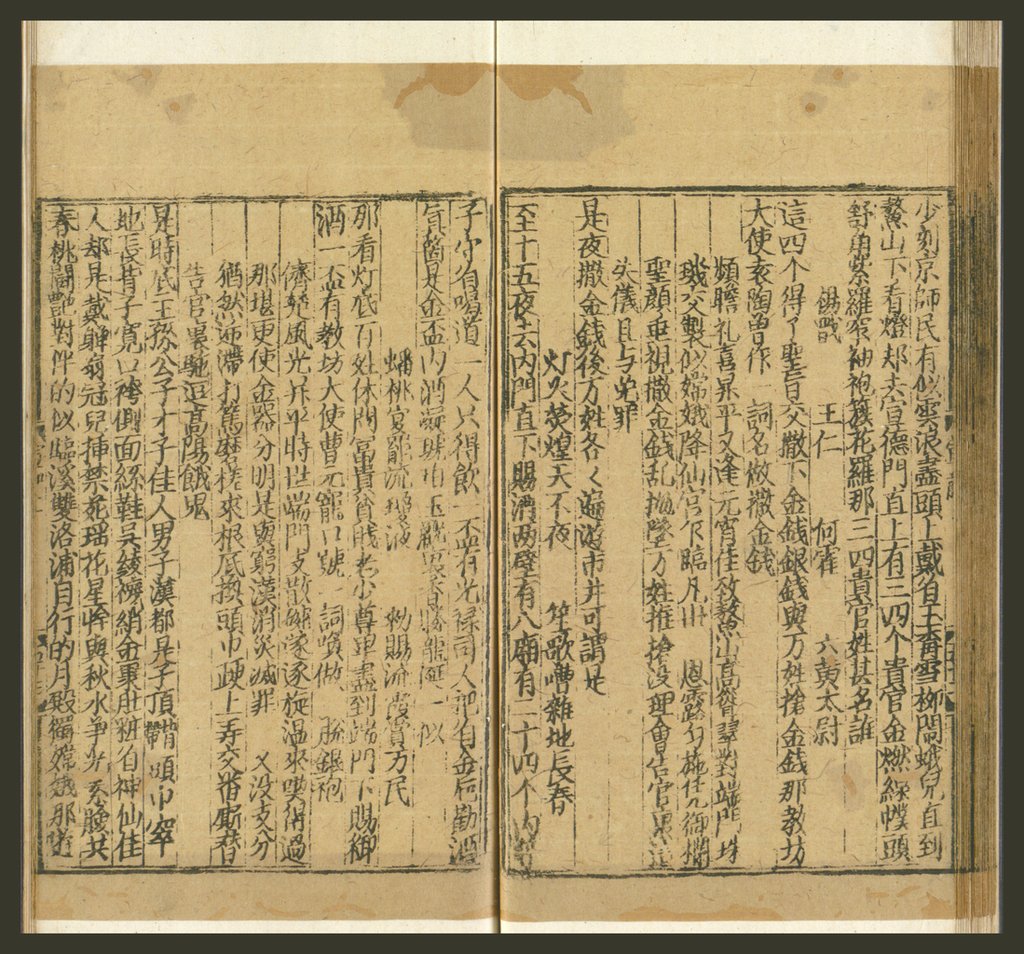 少刻京師民有似雲浪盡頭上戴着玉梅雪柳閙蛾兒直到
鰲山下看燈却去宣德門直上有三四个貴官金燃線幞頭
舒角紫羅窄袖袍簇花羅那三四貴官姓甚名誰
楊戩 王仁 何霍 六黄太尉
這四个得了聖旨交撒下金錢銀錢與万姓搶金钱那教坊
大使袁陶曽作一詞名做撒金钱
頻瞻礼喜昇平又逢元宵佳致鰲山高聳翠對端門珠
璣交製似嫦娥降仙宮乍臨凡世 恩露匀施凭御欄
聖顔垂視撒金銭乱抛墜万姓推搶没理會告官裏這
失儀且与免罪
是夜撒金錢後万姓各〻遍遊市井可謂是
灯火熒煌天不夜 笙歌嘈雜地長春
至十五夜去内門直下賜酒两壁有八廂有二十四个内
子守着喝道一人只得飲一盃有光禄司人把着金卮勸酒
真箇是金盃内酒凝琥珀玉觥裏香勝龍涎一似
蟠桃宴罷流瓊液 勑賜流霞賞万民
那看灯底百姓休問富貴貧賎老少尊卑盡到端門下賜御
酒一盃有教坊大使曹元寵口號一詞喚做 脱銀袍
濟楚風光昇平時世端門支散碗遂逐旋温來喫得過
那堪更使金器分明是與窮漢消災滅罪 又没支分
猶然遞滯打篤磨槎來根底換頭巾便上弄交番廝替
告官裏馳逗高陽餓鬼
是時底王孫公子才子佳人男子漢都是子頂背帶頭巾窣
地長背子寛口袴側面絲鞋吴綾襪綃金裹肚粧着神仙佳
人却是戴軃扇冠兒插禁苑瑶花星眸與秋水爭光素臉共
春桃鬭艶對伴的似臨溪雙洛浦自行的月殿獨嫦娥那